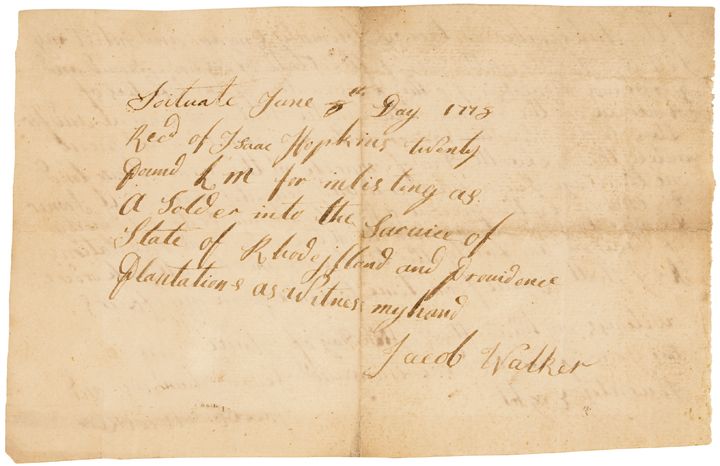 Scituate June 5th Day 1778
Recd of Isaac Hopkins twenty
pound L M for inlisting as
A Solder into the Sarvice of
State of Rhodejsland and providence
plantations as witness my hand
Jacob Walker